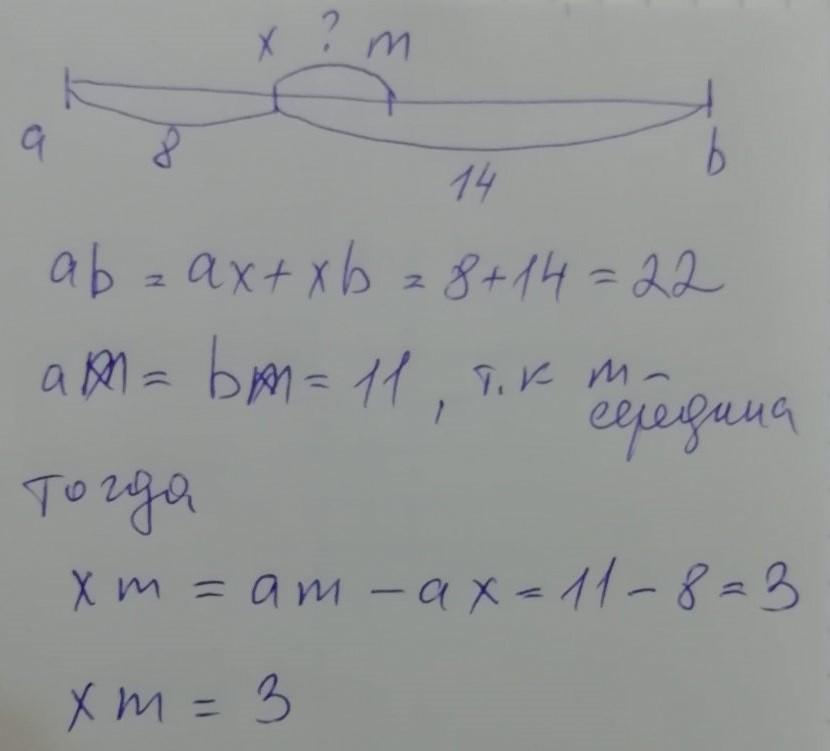 x ? m
a 8 14 b
ab = ax + xb = 8 + 14 = 22
am = bm = 11, т.к m -
середина
тогда
xm = am - ax = 11 - 8 = 3
xm = 3